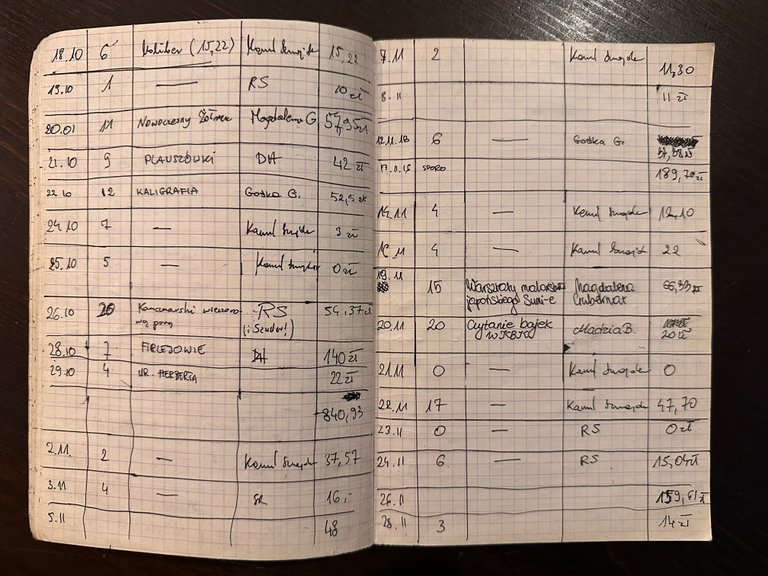 18.10 6 Koliber (15,22) Kamil 15,22
19.10 1 — RS 10 zł
20.01 11 Nowoczesny Magdalena G. 57,95 zł
21.10 9 PLAUSZÓWKI DH 42 zł
22.10 12 KALIGRAFIA Gośka G.
24.10 7 — Kamil 3 zł
25.10 5 — Kamil 0 zł
26.10 20 RS 54,37 zł
(i Szudar!)
28.10 7 FIRLEJOWIE DH 140 zł
29.10 4 UR. HERBERTA 22 zł
840,93
2.11. 2 — Kamil 37,57
3.11 4 — SR 16,-
5.11 48
7.11 2 Kamil 11,30
8.11 11 zł
12.11.18 6 — Gośka G.
SPORO 189,70 zł
14.11 4 — Kamil 12,10
4 — Kamil 22
19.11 15 Warsztaty malarstwa Magdalena
japońskiego Sumi-e
20.11 20 Czytanie bajek Madzia B. 20 zł
21.11 0 — Kamil 0
22.11 17 — Kamil 47,70
23.11 0 — RS 0 zł
24.11 6 — RS 15,04 zł
26.11 159,61 zł
28.11 3 14 zł